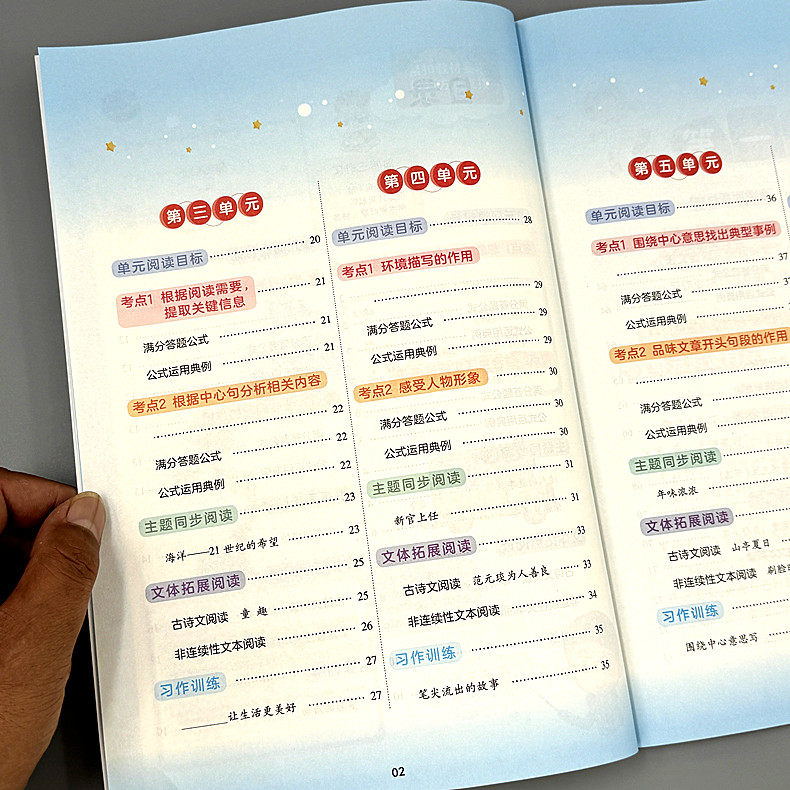 第三单元
单元阅读目标 20
考点1 根据阅读需要，
提取关键信息 21
满分答题公式 21
公式运用典例 21
考点2 根据中心句分析相关内容
22
满分答题公式 22
公式运用典例 22
主题同步阅读 23
海洋——21世纪的希望 23
文体拓展阅读 25
古诗文阅读 童趣 25
非连续性文本阅读 26
习作训练 27
______让生活更美好 27
第四单元
单元阅读目标 28
考点1 环境描写的作用
29
满分答题公式 29
公式运用典例 29
考点2 感受人物形象 30
满分答题公式 30
公式运用典例 30
主题同步阅读 31
新官上任 31
文体拓展阅读 33
古诗文阅读 范元琰为人善良 33
非连续性文本阅读 34
习作训练 35
笔尖流出的故事 35
02
第五单元
单元阅读目标 36
考点1 围绕中心意思找出典型事例
37
满分答题公式
公式运用典例
考点2 品味文章开头句段的作用
满分答题公式
公式运用典例
主题同步阅读
年味浓浓
文体拓展阅读
古诗文阅读 山亭夏日
非连续性文本阅读
习作训练
围绕中心意思写